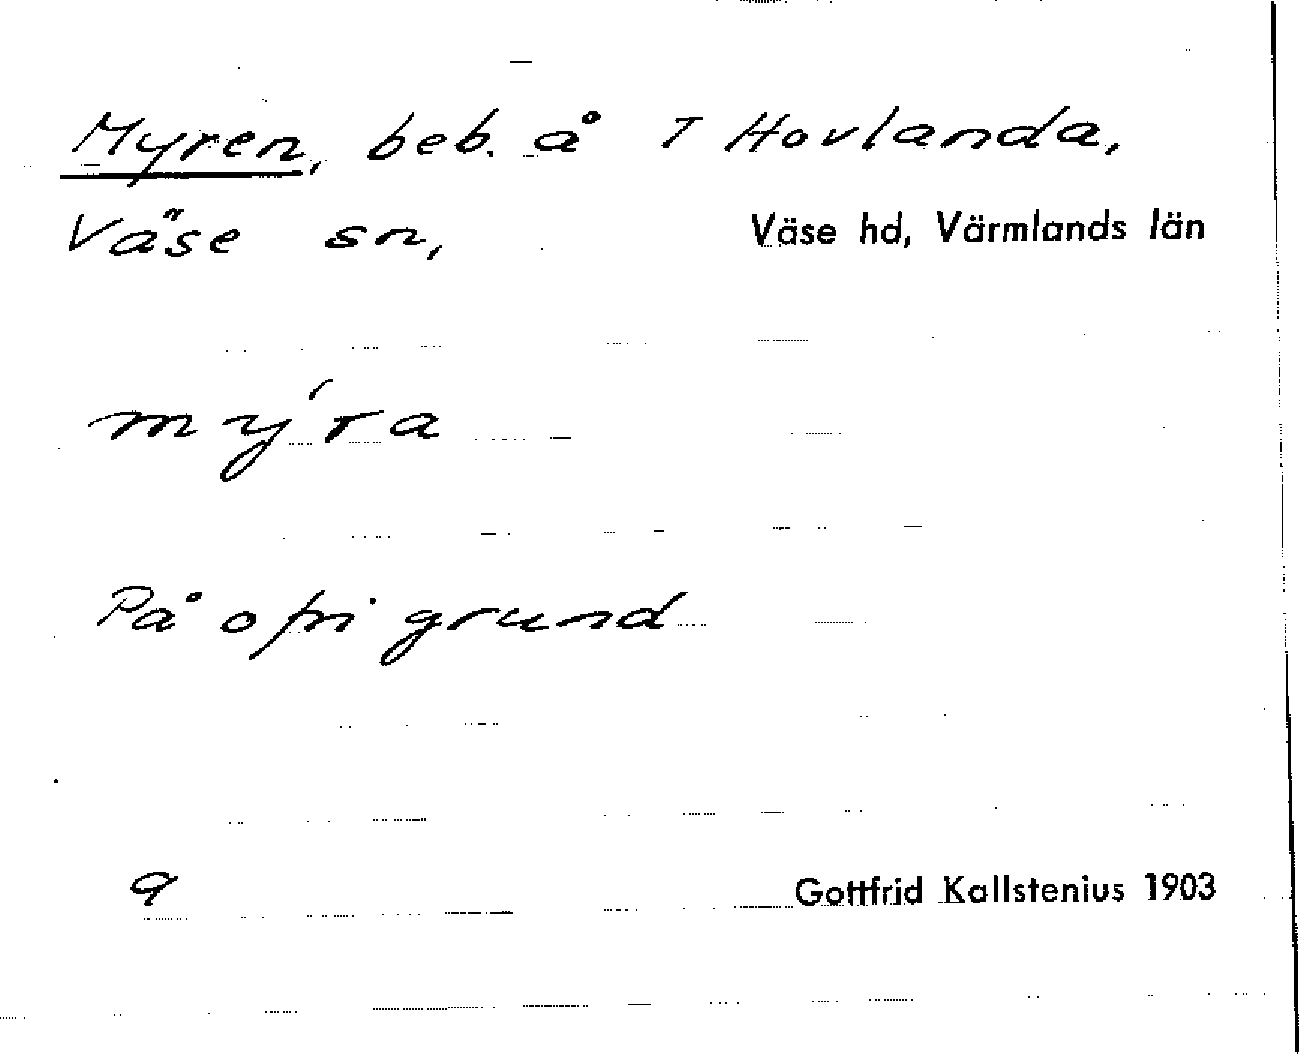 Myren, beb. å T Hovlanda,
Väse sn, Väse hd, Värmlands län
mýra
På ofri grund
9
Gottfrid Kallstenius 1903